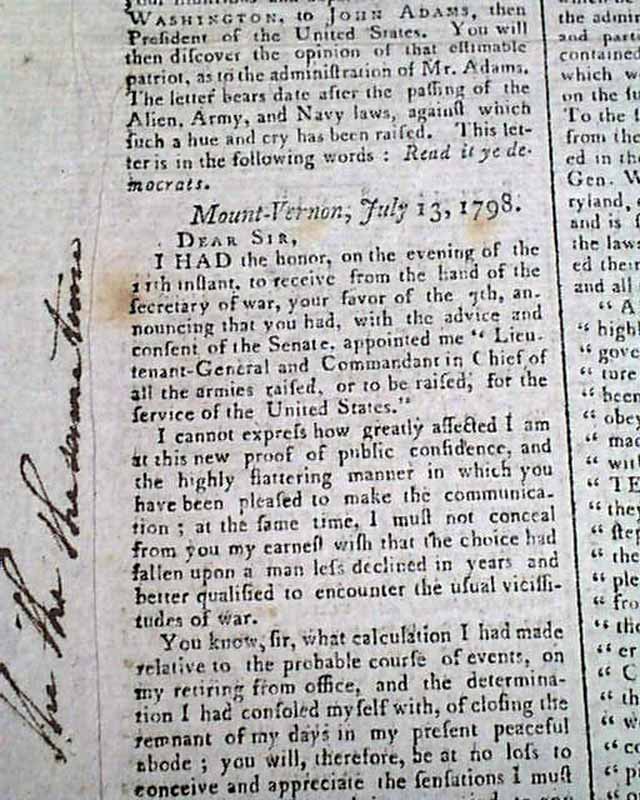 WASHINGTON, to JOHN ADAMS, then
Preſident of the United States. You will
then diſcover the opinion of that eſtimable
patriot, as to the adminiſtration of Mr. Adams.
The letter bears date after the paſſing of the
Alien, Army, and Navy laws, againſt which
ſuch a hue and cry has been raiſed. This let-
ter is in the following words : Read it ye de-
mocrats.
Mount-Vernon, July 13, 1798.
DEAR SIR,
I HAD the honor, on the evening of the
11th inſtant, to receive from the hand of the
ſecretary of war, your favor of the 7th, an-
nouncing that you had, with the advice and
conſent of the Senate, appointed me “ Lieu-
tenant-General and Commandant in Chief of
all the armies raiſed, or to be raiſed, for the
ſervice of the United States.”
I cannot expreſs how greatly affected I am
at this new proof of public confidence, and
the highly flattering manner in which you
have been pleaſed to make the communica-
tion ; at the ſame time, I muſt not conceal
from you my earneſt wiſh that the choice had
fallen upon a man leſs declined in years and
better qualified to encounter the uſual viciſſi-
tudes of war.
You know, ſir, what calculation I had made
relative to the probable courſe of events, on
my retiring from office, and the determina-
tion I had conſoled myſelf with, of cloſing the
remnant of my days in my preſent peaceful
abode ; you will, therefore, be at no loſs to
conceive and appreciate the ſenſations I muſt
the admi
and part
contained
which w
on the
To the
from the
ed in th
Gen. W
ryland,
and is
the laws
ed their
and all
“ A
“ highl
“ gove
“ ture
“ been
“ obey
“ mad
“ with
“ TE
“ they
“ ſtep
“ the
“ ple
“ fro
“ the
“ er
“ C
“ th
“ w
“ co